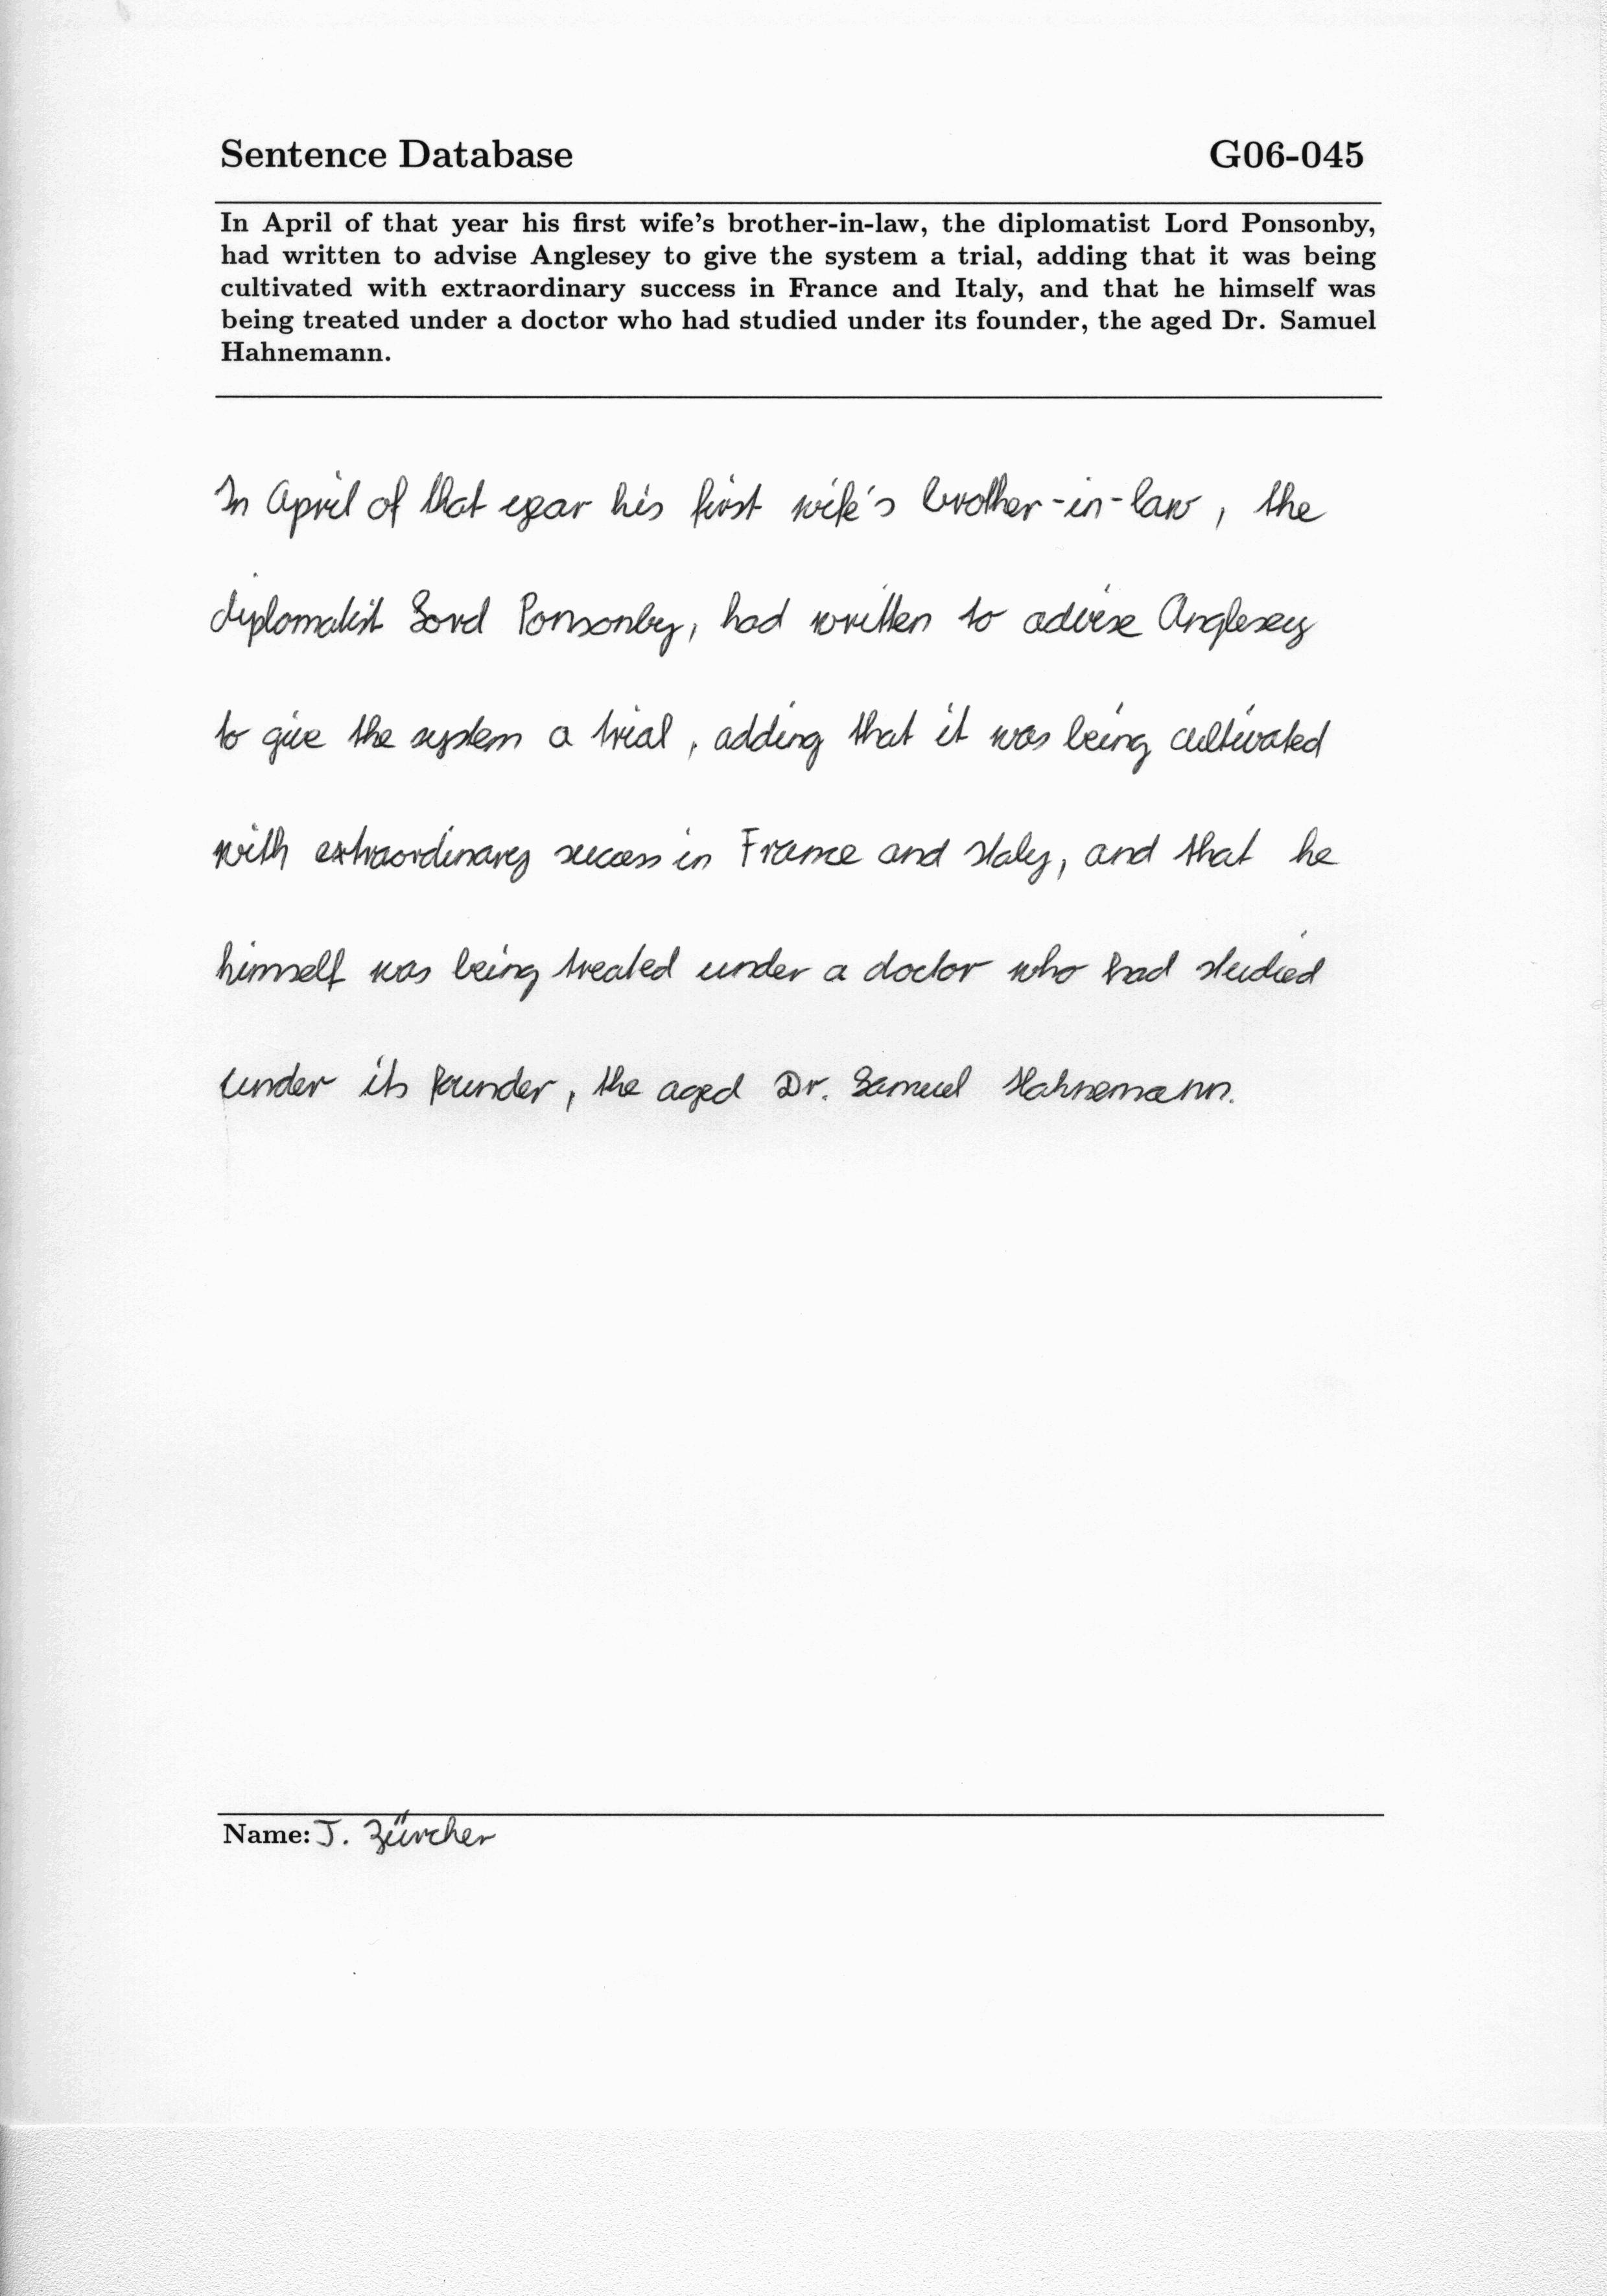 Sentence Database G06-045
In April of that year his first wife's brother-in-law, the diplomatist Lord Ponsonby,
had written to advise Anglesey to give the system a trial, adding that it was being
cultivated with extraordinary success in France and Italy, and that he himself was
being treated under a doctor who had studied under its founder, the aged Dr. Samuel
Hahnemann.
In April of that year his first wife's brother-in-law, the
diplomatist Lord Ponsonby, had written to advise Anglesey
to give the system a trial, adding that it was being cultivated
with extraordinary success in France and Italy, and that he
himself was being treated under a doctor who had studied
under its founder, the aged Dr. Samuel Hahnemann.
Name: J. Zürcher